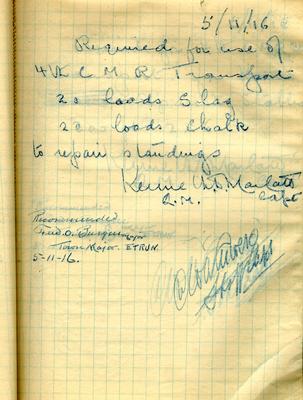 5/11/16
Required for use of
4th C M R Transport
20 loads Slag
20 loads Chalk
to repair standings
Q.M. Capt
Recommended
Recommended
Major
Town Major. ETRUN.
5-11-16.